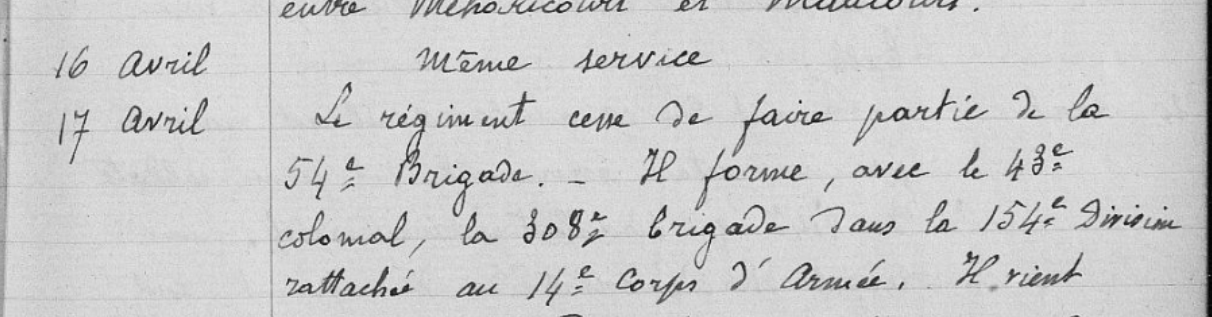 entre Méharicourt et Maucourt.
16 Avril Même service
17 Avril Le régiment cesse de faire partie de la
54e Brigade. - Il forme, avec le 43e
colonial, la 308e brigade dans la 154e Division
rattaché au 14e Corps d'Armée. Il vient